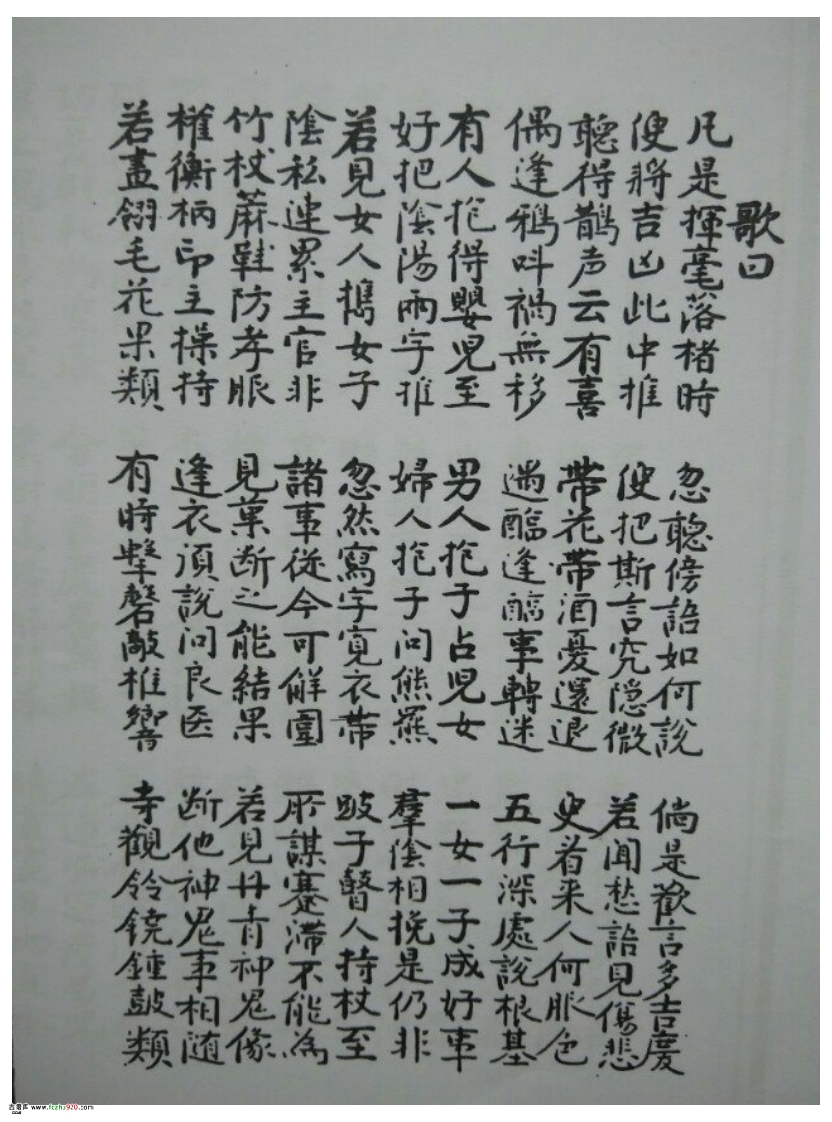 歌曰
凡是揮毫落楮時
便將吉凶此中推
忽聽傍語如何說
便把斯言究隐微
倘是歡言多吉慶
若聞愁語見傷悲
聽得鵲声云有喜
偶逢鴉呌禍無移
帶花帶酒憂還退
遇醯逢醢事轉迷
更看来人何服色
五行深處說根基
有人抱得嬰児至
好把陰陽兩字推
男人抱子占児女
婦人抱子问熊羆
一女一子成好事
羣陰相挽是仍非
若見女人携女子
陰私連累主官非
忽然寫字寬衣帶
諸事從今可解圍
跛子瞽人持杖至
所謀蹇滯不能為
竹杖蔴鞋防孝服
權衡柄印主操持
見菓断之能結果
逢衣須說问良医
若見丹青神鬼像
断他神鬼事相随
若畫翎毛花果類
有時擊磬敲椎響
寺觀鈴鐃鍾鼓類